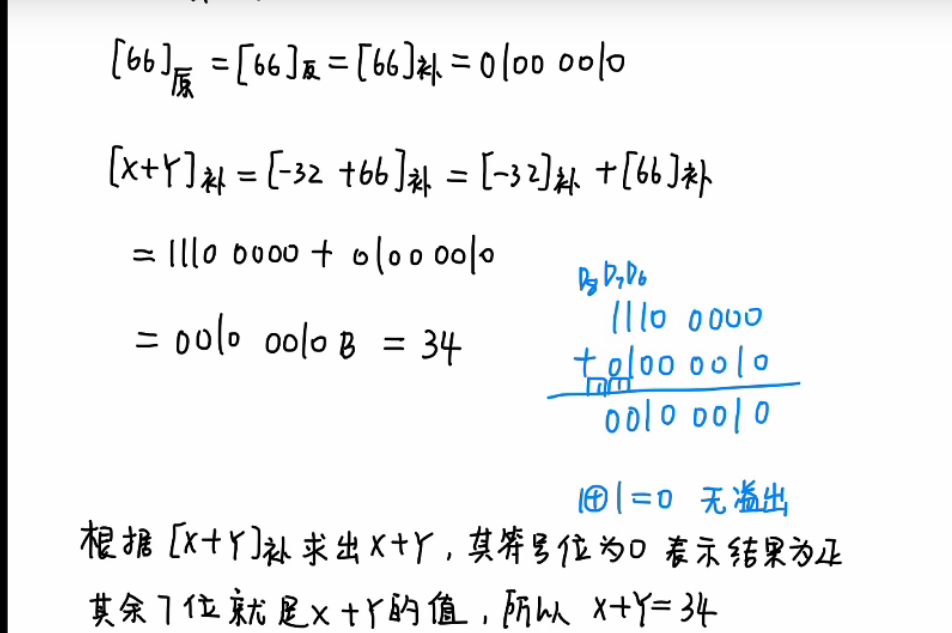 [66]原 = [66]反 = [66]补 = 0100 0010
[X+Y]补 = [-32 +66]补 = [-32]补 + [66]补
= 1110 0000 + 0100 0010
= 0010 0010 B = 34
D8 D7 D6
1110 0000
+ 0100 0010
1 1
0010 0010
1⊕1=0 无溢出
根据 [X+Y]补 求出 X+Y, 其符号位为0 表示结果为正
其余7位就是X+Y的值, 所以 X+Y=34